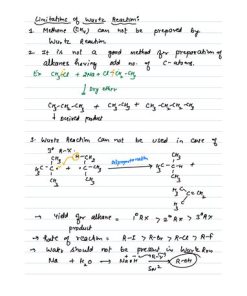 Limitation of Wurtz Reaction:
1. Methane (CH4) can not be prepared by
Wurtz Reaction
2. It is not a good method for preparation of
alkanes having odd no. of C-atoms.
Ex CH3-Cl + 2Na + Cl-CH2-CH3
↓ Dry ether
CH3-CH2-CH3 + CH3-CH3 + CH3-CH2-CH2-CH3
↓ Desired product
3. Wurtz Reaction can not be used in case of
3° R-X.
CH3 CH3 CH3
H3C-C• + •C-CH3 Disproportionation → H3C-C-H +
CH3 CH3 CH3
H3C
C=CH2
CH3
→ Yield for alkane = 1° RX > 2° RX > 3° RX
product
→ Rate of reaction = R-I > R-Br > R-Cl > R-F
→ Water should not be present in Wurtz Rxn
Na + H2O → NaOH R-X → R-OH
SN2